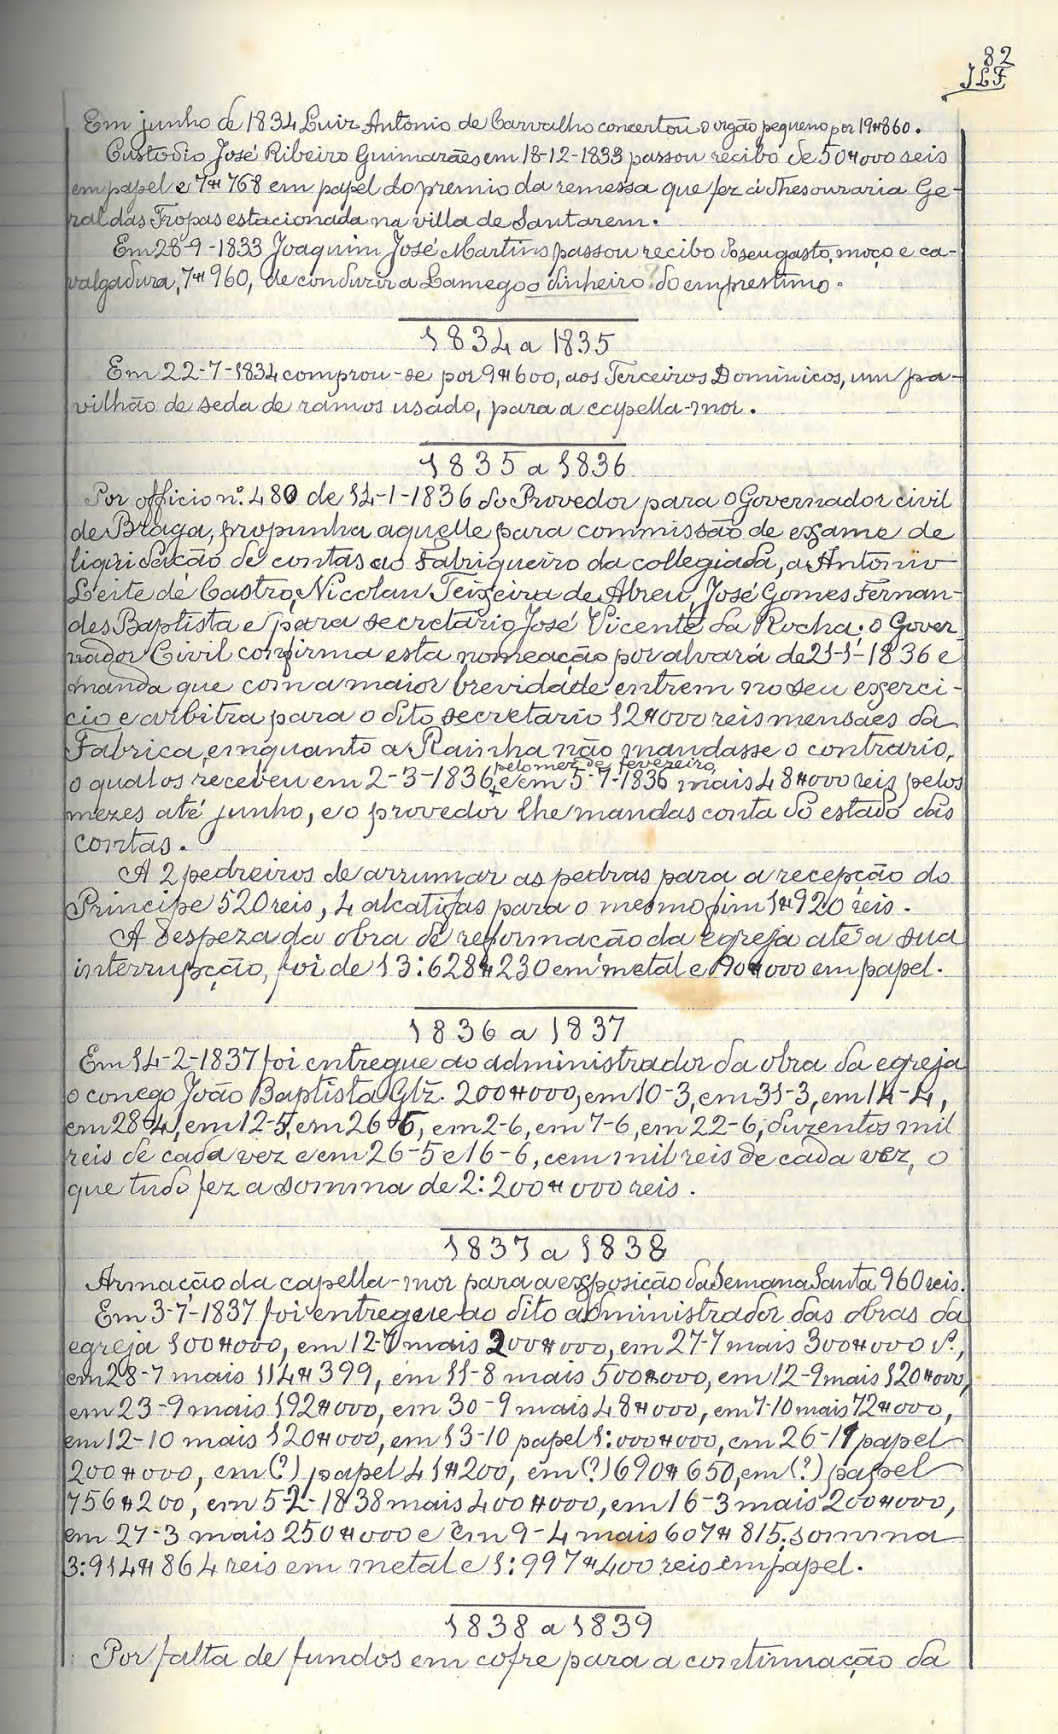 82
JLF.
Em junho de 1834 Luiz Antonio de Carvalho concertou o orgão pequeno por 19#860.
Custodio José Ribeiro Guimarães em 18-12-1833 passou recibo de 50#000 reis
em papel e 7#768 em papel do premio da remessa que fez á Thesouraria Ge-
ral das Tropas estacionada na villa de Santarem.
Em 28-9-1833 Joaquim José Martins passou recibo do seu gasto, moço e ca-
valgadura, 7#960, de conduzir a Lamego o dinheiro do emprestimo.
1834 a 1835
Em 22-7-1834 comprou-se por 9#600, aos Terceiros Dominicos, um pa-
vilhão de seda de ramos usado, para a capella-mor.
1835 a 1836
Por officio nº. 480 de 14-1-1836 do Provedor para o Governador civil
de Braga, propunha aquelle para commissão de exame de
liquidação de contas ao Fabriqueiro da collegiada, a Antonio
Leite de Castro, Nicolau Teixeira de Abreu, José Gomes Fernan-
des Baptista e para secretario José Vicente da Rocha; o Gover-
nador Civil confirma esta nomeação por alvará de 21-1-1836 e
manda que com a maior brevidade entrem no seu exerci-
cio e arbitra para o dito secretario 12#000 reis mensaes da
Fabrica, emquanto a Rainha não mandasse o contrario,
pelo mez de fevereiro
o qual os recebeu em 2-3-1836, e em 5-7-1836 mais 48#000 reis pelos
mezes até junho, e o provedor lhe mandas conta do estado das
contas.
A 2 pedreiros de arrumar as pedras para a recepção do
Principe 520 reis, 4 alcatifas para o mesmo fim 1#920 réis.
A despeza da obra de reformação da egreja até a sua
interrupção, foi de 13:628#230 em metal e 190#000 em papel.
1836 a 1837
Em 14-2-1837 foi entregue ao administrador da obra da egreja
o conego João Baptista Glz. 200#000, em 10-3, em 31-3, em 14-4,
em 28-4, em 12-5, em 26-5, em 2-6, em 7-6, em 22-6, duzentos mil
reis de cada vez e em 26-5 e 16-6, cem mil reis de cada vez, o
que tudo fez a somma de 2:200#000 reis.
1837 a 1838
Armação da capella-mor para a exposição da Semana Santa 960 reis.
Em 3-7-1837 foi entregue ao dito administrador das obras da
egreja 100#000, em 12-7 mais 200#000, em 27-7 mais 300#000 rs.,
em 28-7 mais 114#399, em 11-8 mais 500#000, em 12-9 mais 120#000,
em 23-9 mais 192#000, em 30-9 mais 48#000, em 7-10 mais 72#000,
em 12-10 mais 120#000, em 13-10 papel 1:000#000, em 26-11 papel
200#000, em (?) papel 41#200, em (?) 690#650, em (?) papel
756#200, em 5-2-1838 mais 400#000, em 16-3 mais 200#000,
em 27-3 mais 250#000 e em 9-4 mais 607#815; somma
3:914#864 reis em metal e 1:997#400 reis em papel.
1838 a 1839
Por falta de fundos em cofre para a continuação da